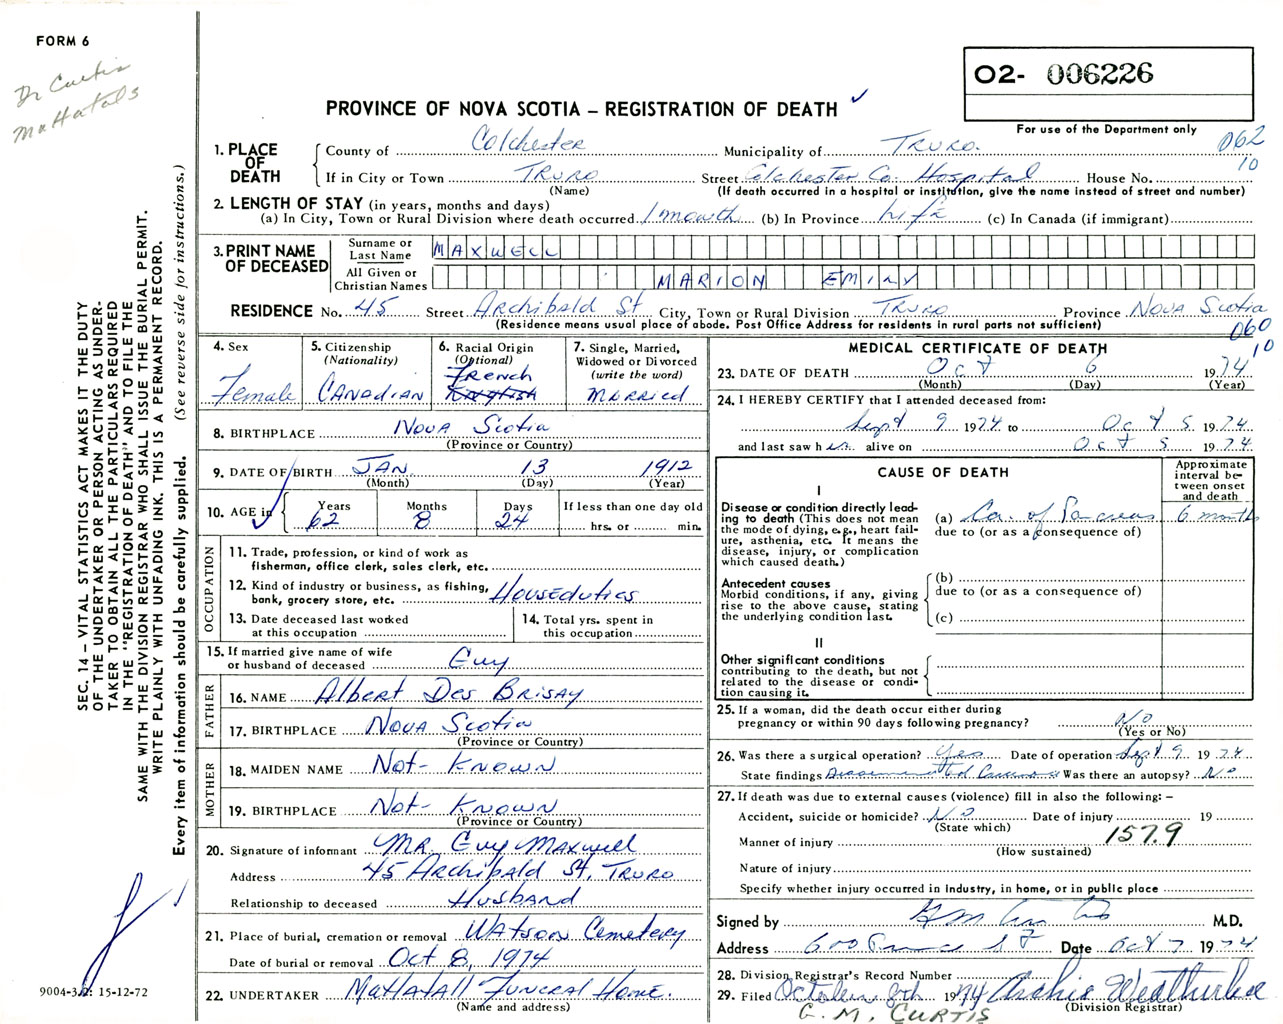 FORM 6
Dr Curtis
MaHatals
O2- 006226
PROVINCE OF NOVA SCOTIA – REGISTRATION OF DEATH ✓
For use of the Department only
062
10
1. PLACE OF DEATH
County of Colchester Municipality of TRURO.
If in City or Town TRURO Street Colchester Co. Hospital House No.
(Name) (If death occurred in a hospital or institution, give the name instead of street and number)
2. LENGTH OF STAY (in years, months and days)
(a) In City, Town or Rural Division where death occurred 1 month (b) In Province Life (c) In Canada (if immigrant)
3. PRINT NAME OF DECEASED
Surname or Last Name MAXWELL
All Given or Christian Names MARION EMILY
RESIDENCE No. 45 Street Archibald St City, Town or Rural Division TRURO Province NOVA Scotia
(Residence means usual place of abode. Post Office Address for residents in rural parts not sufficient)
060
10
4. Sex
Female
5. Citizenship
(Nationality)
CANADIAN
6. Racial Origin
(Optional)
French
English
7. Single, Married,
Widowed or Divorced
(write the word)
MARRIED
8. BIRTHPLACE NOVA Scotia
(Province or Country)
9. DATE OF BIRTH JAN 13 1912
(Month) (Day) (Year)
10. AGE in Years 62 Months 8 Days 24
If less than one day old
hrs. or min.
OCCUPATION
11. Trade, profession, or kind of work as
fisherman, office clerk, sales clerk, etc.
12. Kind of industry or business, as fishing,
bank, grocery store, etc. Houseduties
13. Date deceased last worked
at this occupation
14. Total yrs. spent in
this occupation
15. If married give name of wife
or husband of deceased Guy
FATHER
16. NAME Albert Des Brisay
17. BIRTHPLACE NOVA Scotia
(Province or Country)
MOTHER
18. MAIDEN NAME Not- Known
19. BIRTHPLACE Not- Known
(Province or Country)
20. Signature of informant MR. Guy Maxwell
Address 45 Archibald St, TRURO
Relationship to deceased Husband
21. Place of burial, cremation or removal WATSON Cemetery
Date of burial or removal Oct 8, 1974
22. UNDERTAKER MaHatall Funeral Home.
(Name and address)
MEDICAL CERTIFICATE OF DEATH
23. DATE OF DEATH Oct 6 1974
(Month) (Day) (Year)
24. I HEREBY CERTIFY that I attended deceased from:
Sept 9 1974 to Oct 5 1974
and last saw her alive on Oct 5 1974
CAUSE OF DEATH
Approximate interval between onset and death
I
Disease or condition directly leading to death (This does not mean the mode of dying, e.g., heart failure, asthenia, etc. It means the disease, injury, or complication which caused death.)
(a) Ca. of Pancreas 6 months
due to (or as a consequence of)
Antecedent causes
Morbid conditions, if any, giving rise to the above cause, stating the underlying condition last.
(b)
due to (or as a consequence of)
(c)
II
Other significant conditions
contributing to the death, but not related to the disease or condition causing it.
25. If a woman, did the death occur either during
pregnancy or within 90 days following pregnancy? No
(Yes or No)
26. Was there a surgical operation? Yes Date of operation Sept 9 1974
State findings Disseminated Carcinoma Was there an autopsy? No
27. If death was due to external causes (violence) fill in also the following: –
Accident, suicide or homicide? No Date of injury 19
(State which)
Manner of injury 157.9
(How sustained)
Nature of injury
Specify whether injury occurred in industry, in home, or in public place
Signed by M.D.
Address 600 Prince St Date Oct 7 1974
28. Division Registrar's Record Number
29. Filed October 8th 1974 Archie Weatherbee
(Division Registrar)
G. M. CURTIS
SEC. 14 – VITAL STATISTICS ACT MAKES IT THE DUTY
OF THE UNDERTAKER OR PERSON ACTING AS UNDER-
TAKER TO OBTAIN ALL THE PARTICULARS REQUIRED
IN THE "REGISTRATION OF DEATH" AND TO FILE THE
SAME WITH THE DIVISION REGISTRAR WHO SHALL ISSUE THE BURIAL PERMIT.
WRITE PLAINLY WITH UNFADING INK. THIS IS A PERMANENT RECORD.
Every item of information should be carefully supplied. (See reverse side for instructions.)
9004-3.2: 15-12-72